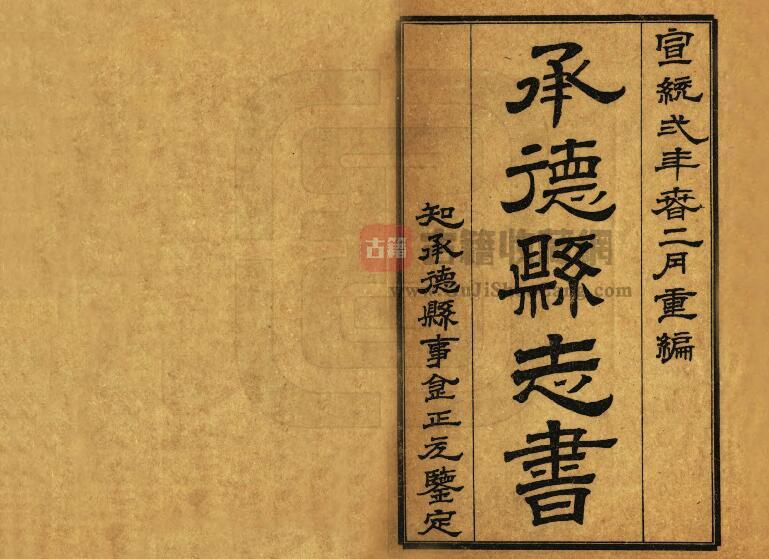 宣統弍年春二月重編
承德縣志書
知承德縣事金正元鑒定
古籍
古籍收藏網
www.GuJiShouCang.com